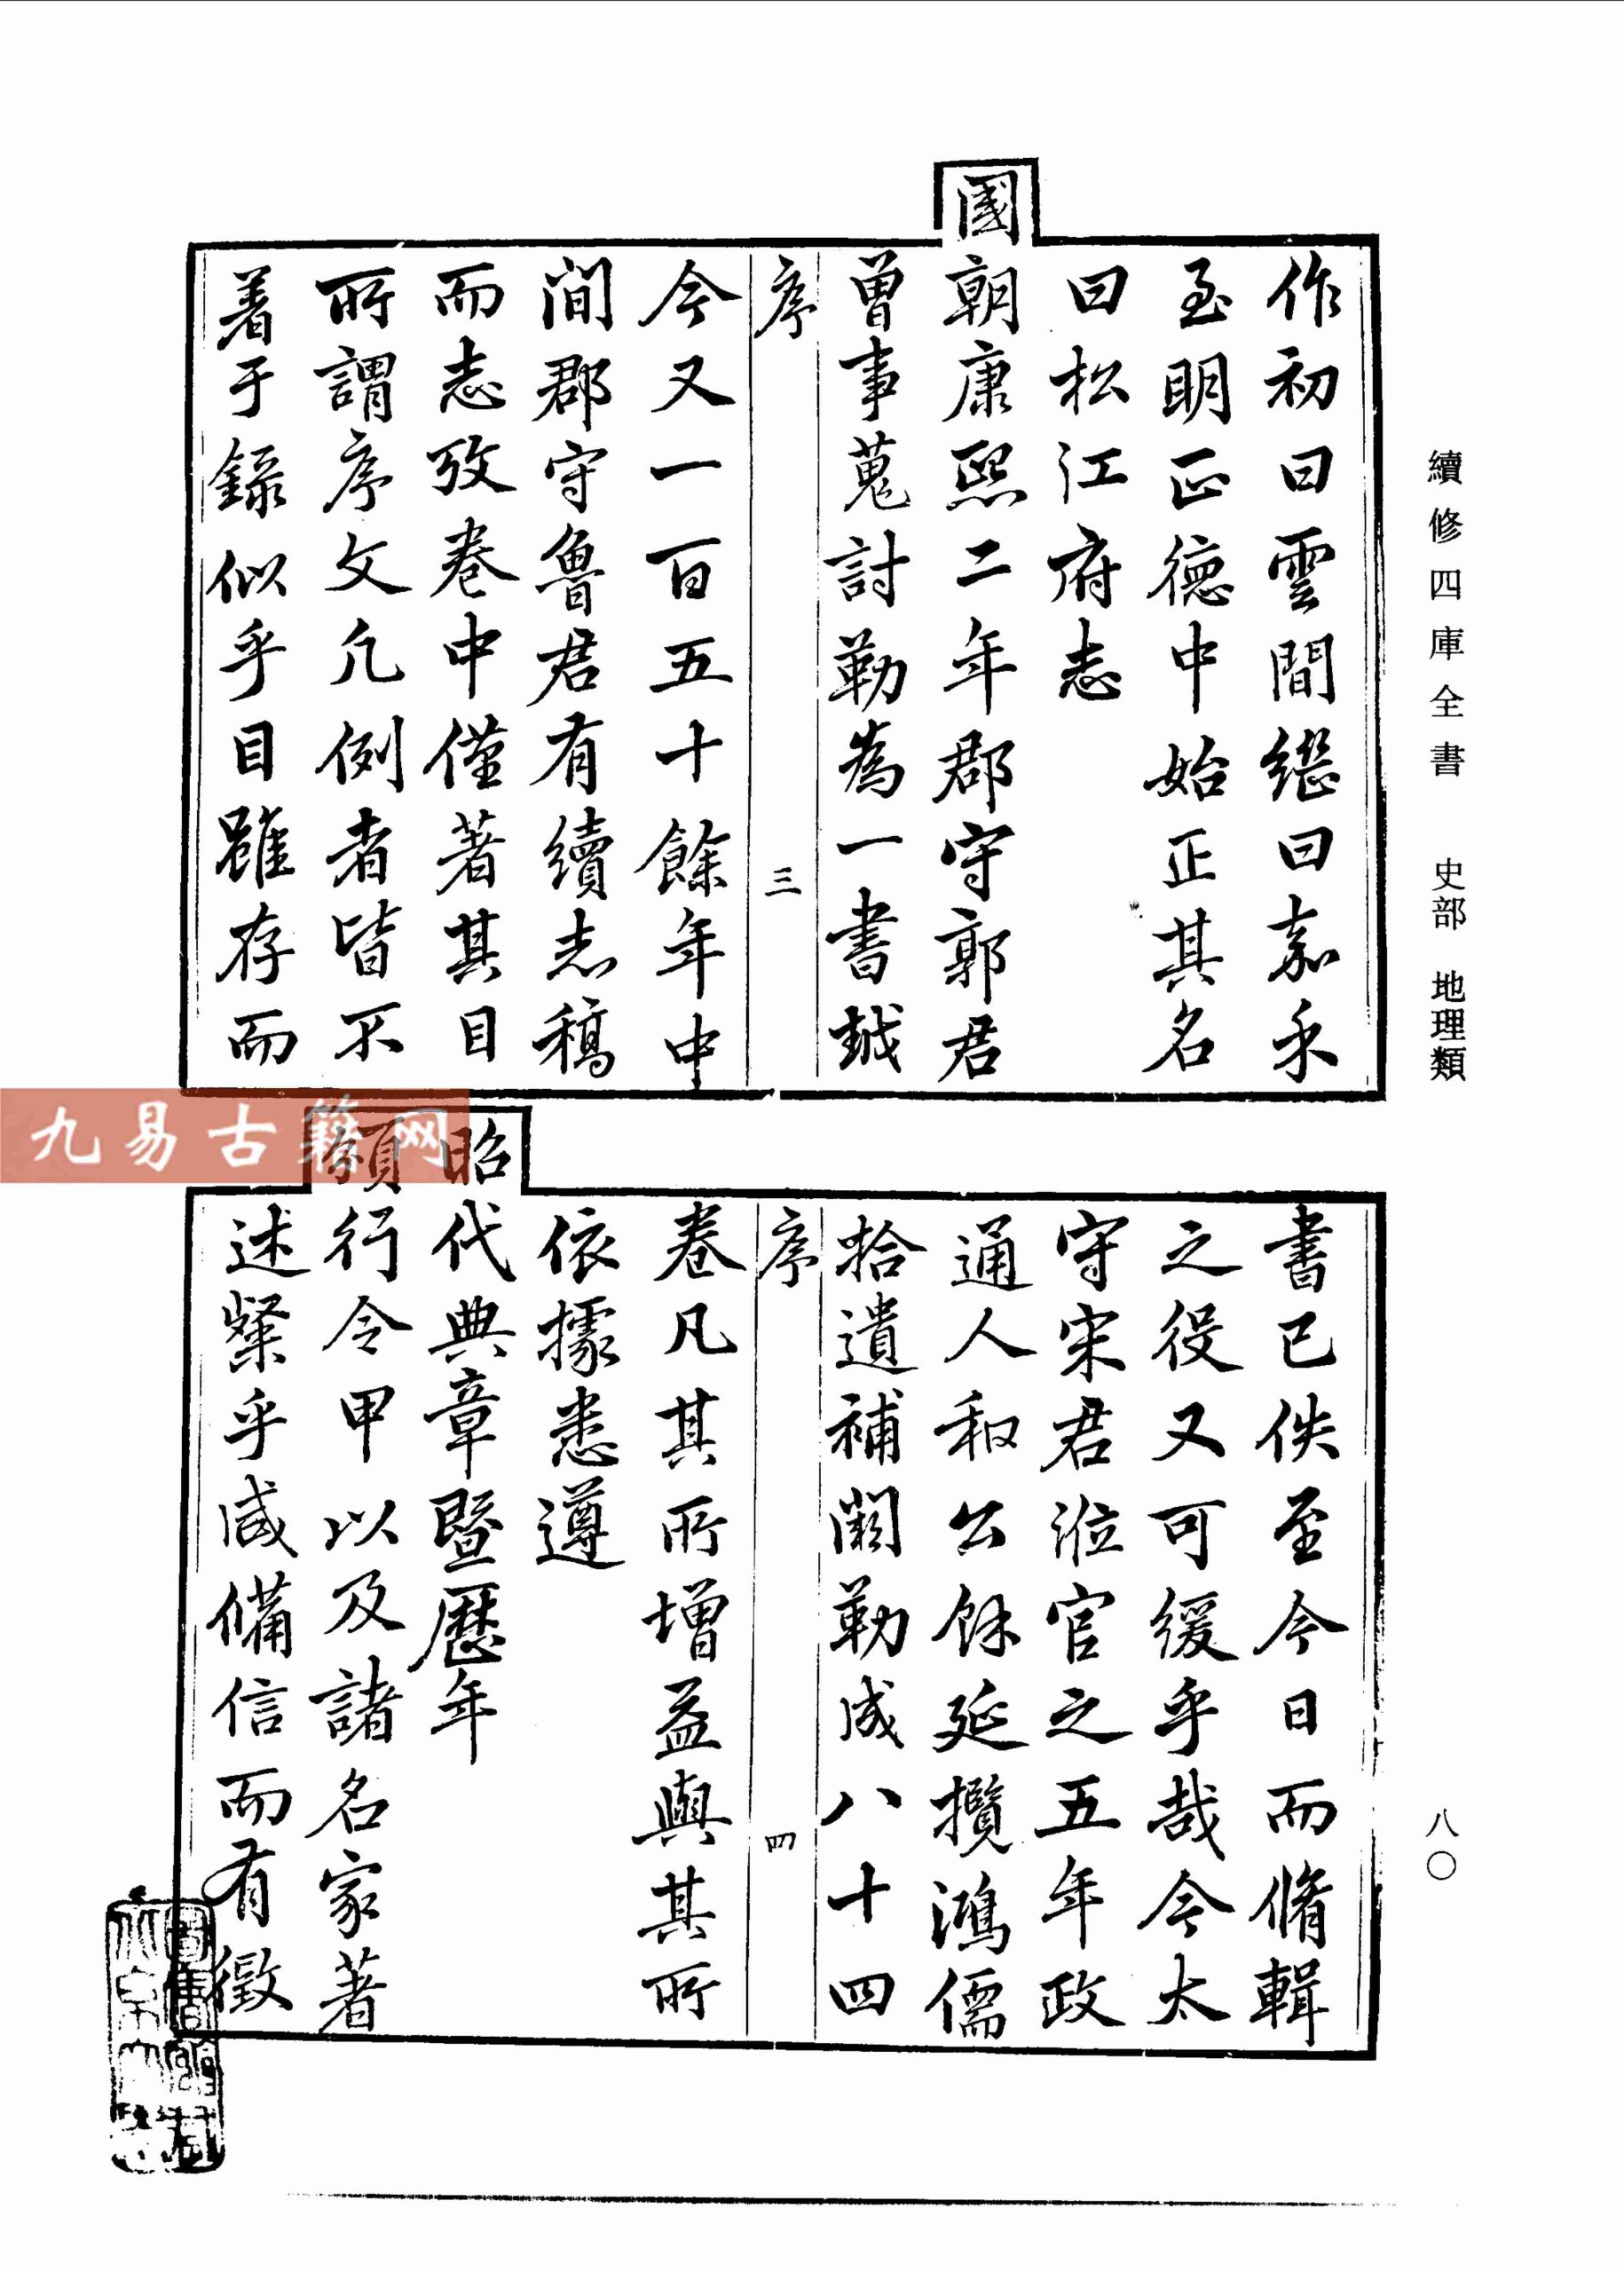 續修四庫全書 史部 地理類
八〇
作初曰雲間繼曰嘉禾
至明正德中始正其名
曰松江府志
國朝康熙二年郡守郭君
曾事蒐討勒為一書越
序 三
今又一百五十餘年中
間郡守魯君有續志稿
而志攷卷中僅著其目
所謂序文凡例者皆不
著于錄似乎目雖存而
書已佚至今日而脩輯
之役又可緩乎哉今太
守宋君涖官之五年政
通人和公餘延攬鴻儒
拾遺補闕勒成八十四
序 四
卷凡其所增益與其所
依據悉遵
昭代典章暨歷年
頒行令甲以及諸名家著
述粲乎咸備信而有徵
九易古籍网